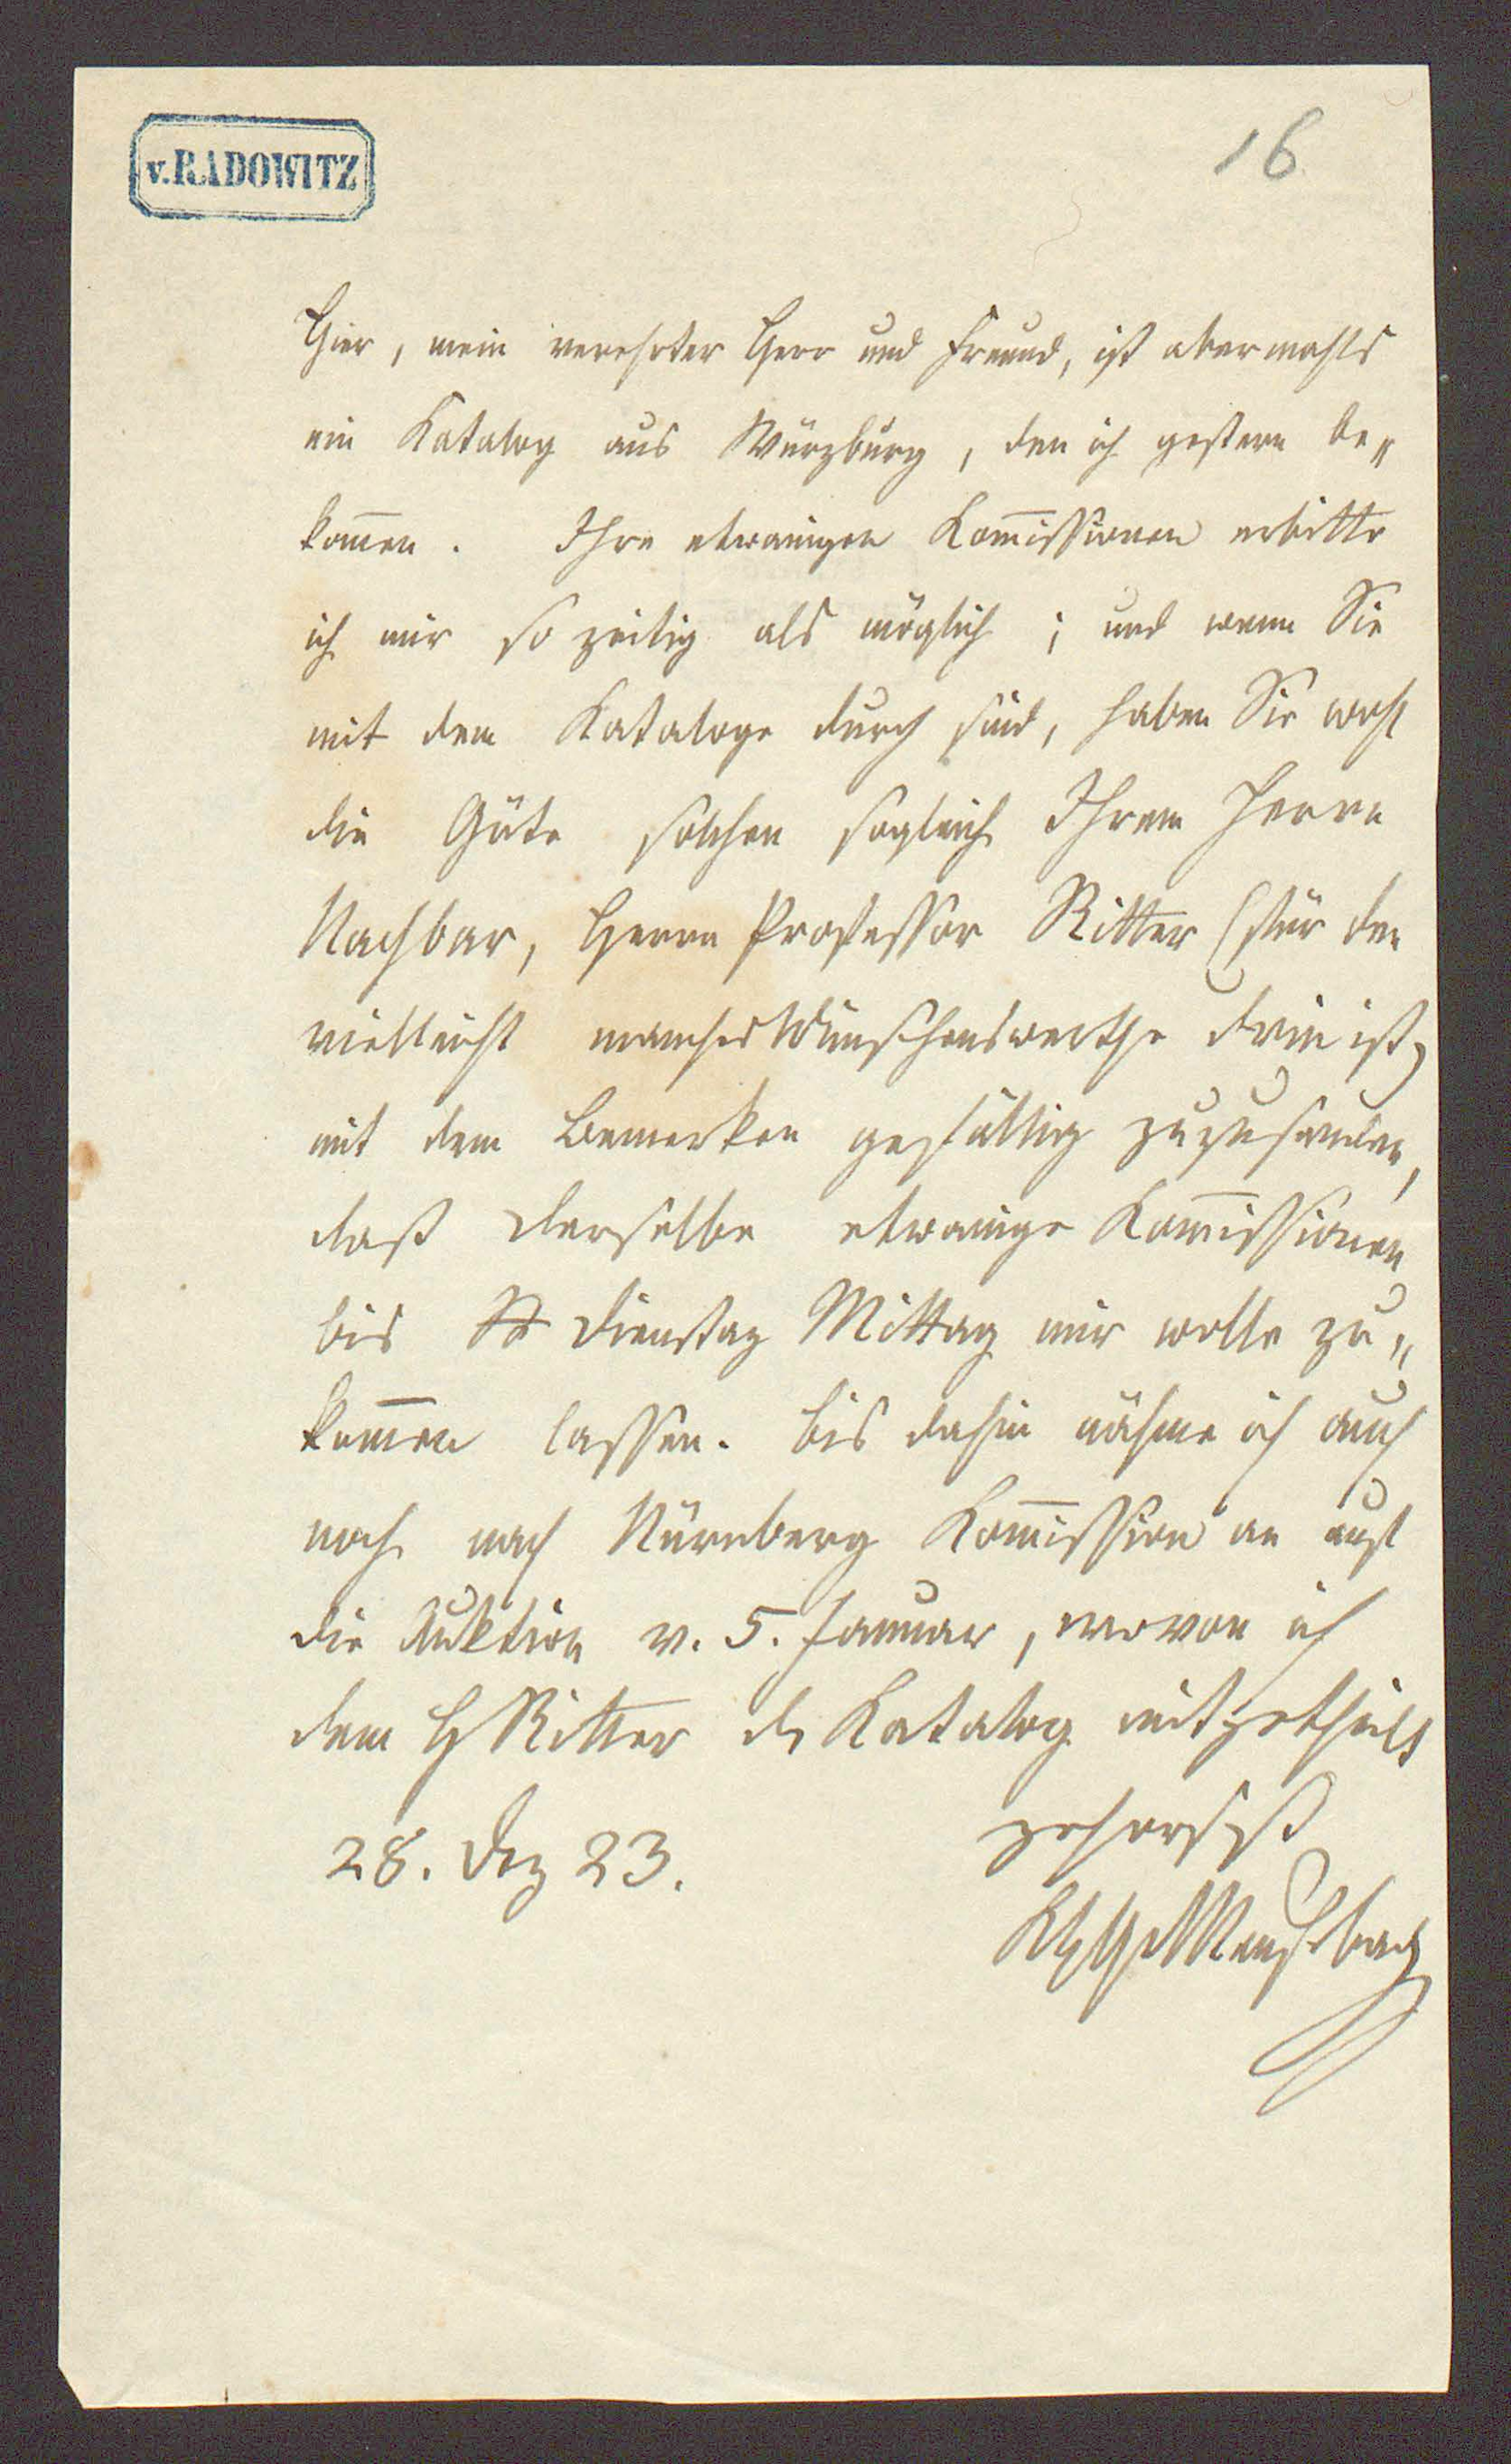 v. RADOWITZ
16
Hier, mein verehrter Herr und Freund, ist abermahls
ein Katalog aus Würzburg, den ich gestern be„
kom̅en. Ihre etwanigen Kom̅issionen erbitte
ich mir so zeitig als möglich; und wenn Sie
mit dem Kataloge durch sind, haben Sie wohl
die Güte solchen sogleich Ihrem Herrn
Nachbar, Herrn Professor Ritter (für den
vielleicht manches Wünschenswerthe drin ist)
mit dem Bemerken gefällig zuzusenden,
daß derselbe etwanige Kom̅issionen
bis Dienstag Mittag mir wolle zu„
kom̅en lassen. Bis dahin nähme ich auch
noch nach Nürnberg Kom̅ission an auf
die Auktion v. 5. Januar, wovon ich
dem H Ritter d Katalog mitgetheilt
gehorsst
28. Dez 23.
KHGvMeusebach